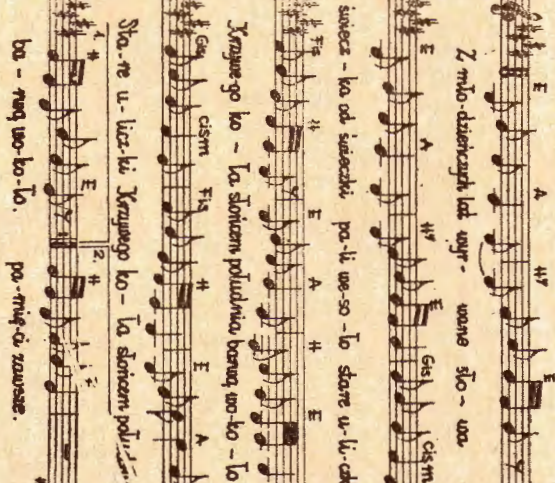 E A H7 E
Z mło-dzieńczych lat wyr- wane sło- wa
E A H7 E Gis cism
świecz-ka od świeczki pa-li we-so-ło stare u-li-cz
Fis H E A H E
Krzywego ko-ła słońcem południa barwą wo-ko-ło
Gis cism Fis H E A
Sta-re u-licz-ki Krzywego ko-ła słońcem połud
1. H E 2. H
ba-rwą wo-ko-ło. pa-mię-ci zawsze.